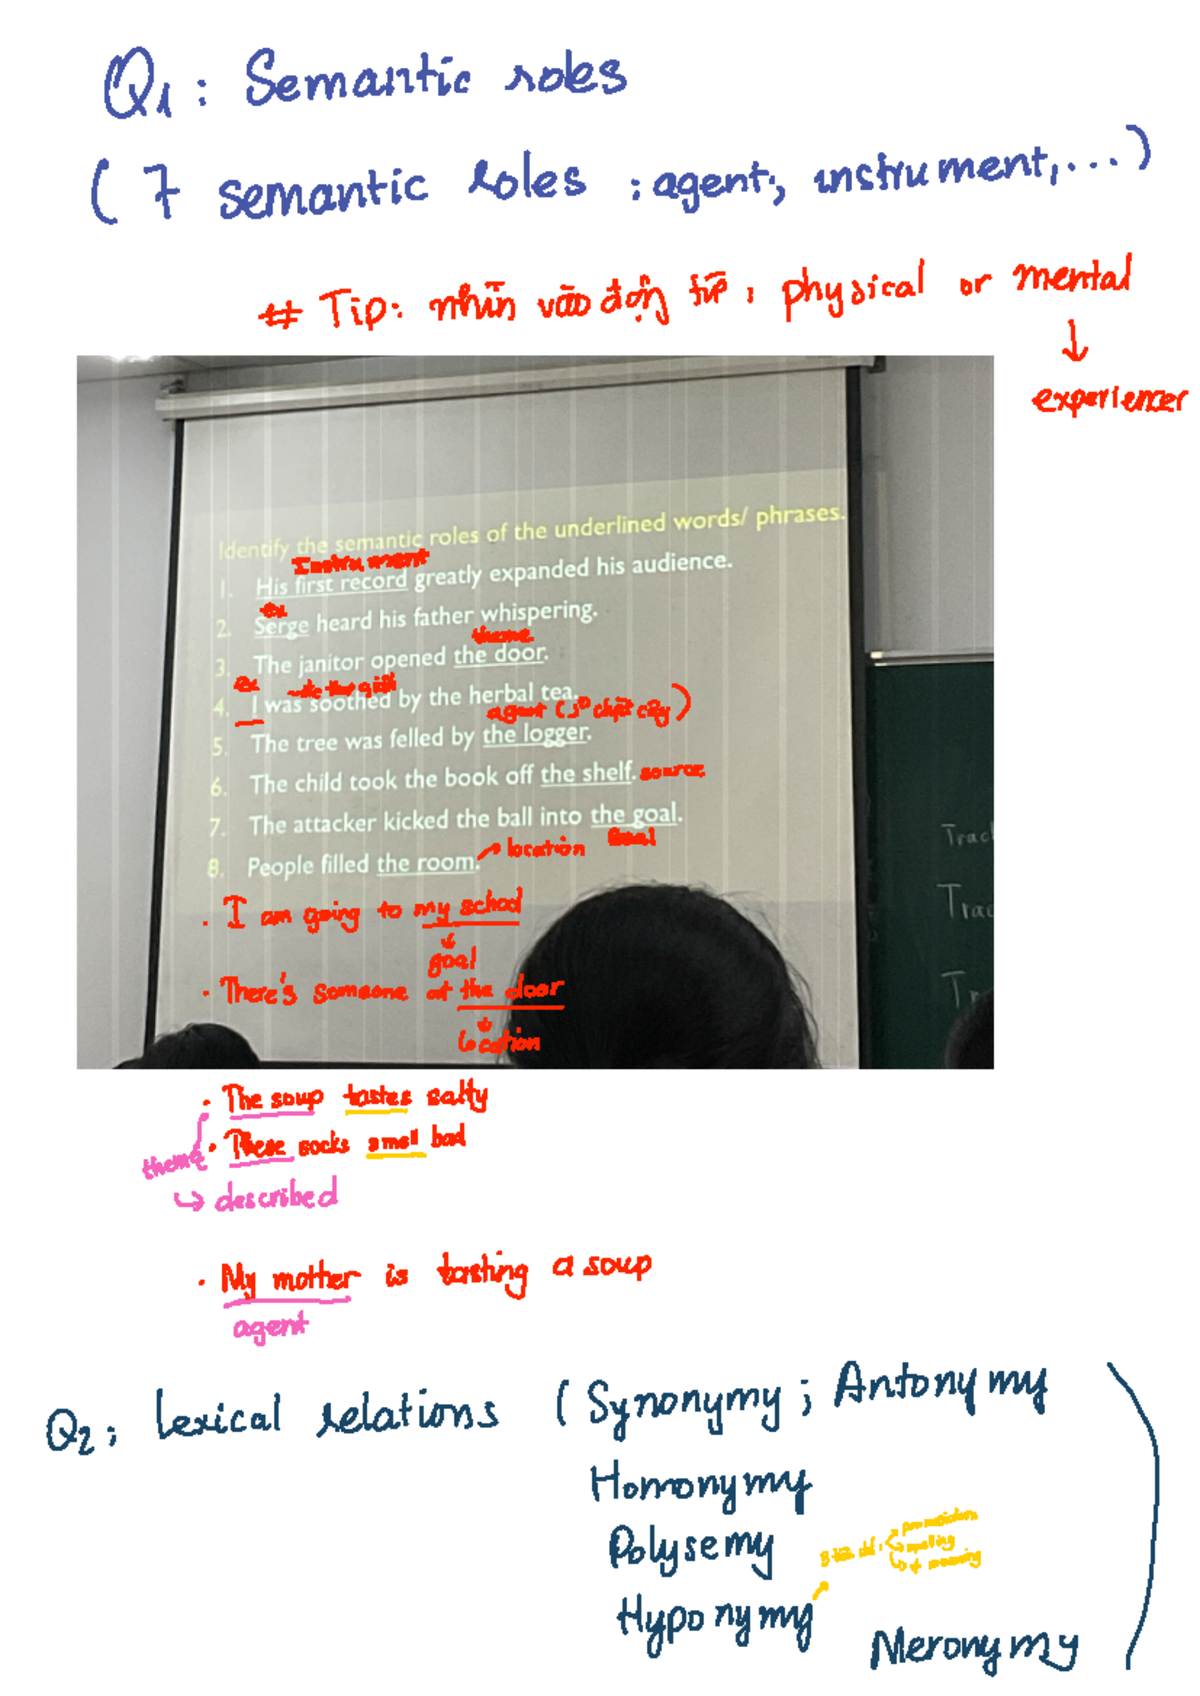 Q1: Semantic roles
( 7 semantic Roles : agent, instrument,...)
# Tip: nhìn vào động từ: physical or mental
↓
experiencer
Identify the semantic roles of the underlined words/ phrases.
Instrument
1. His first record greatly expanded his audience.
ex
2. Serge heard his father whispering.
theme
3. The janitor opened the door.
ex
4. I was soothed by the herbal tea.
agent
5. The tree was felled by the logger.
6. The child took the book off the shelf. source
7. The attacker kicked the ball into the goal.
Goal
8. People filled the room. → location
. I am going to my school
↓
goal
. There's someone at the door
↓
location
. The soup tastes salty
. These socks smell bad
theme
↳ described
. My mother is tasting a soup
agent
Q2: Lexical relations (Synonymy; Antonymy
Homonymy
Polysemy
Hyponymy
Meronymy
)